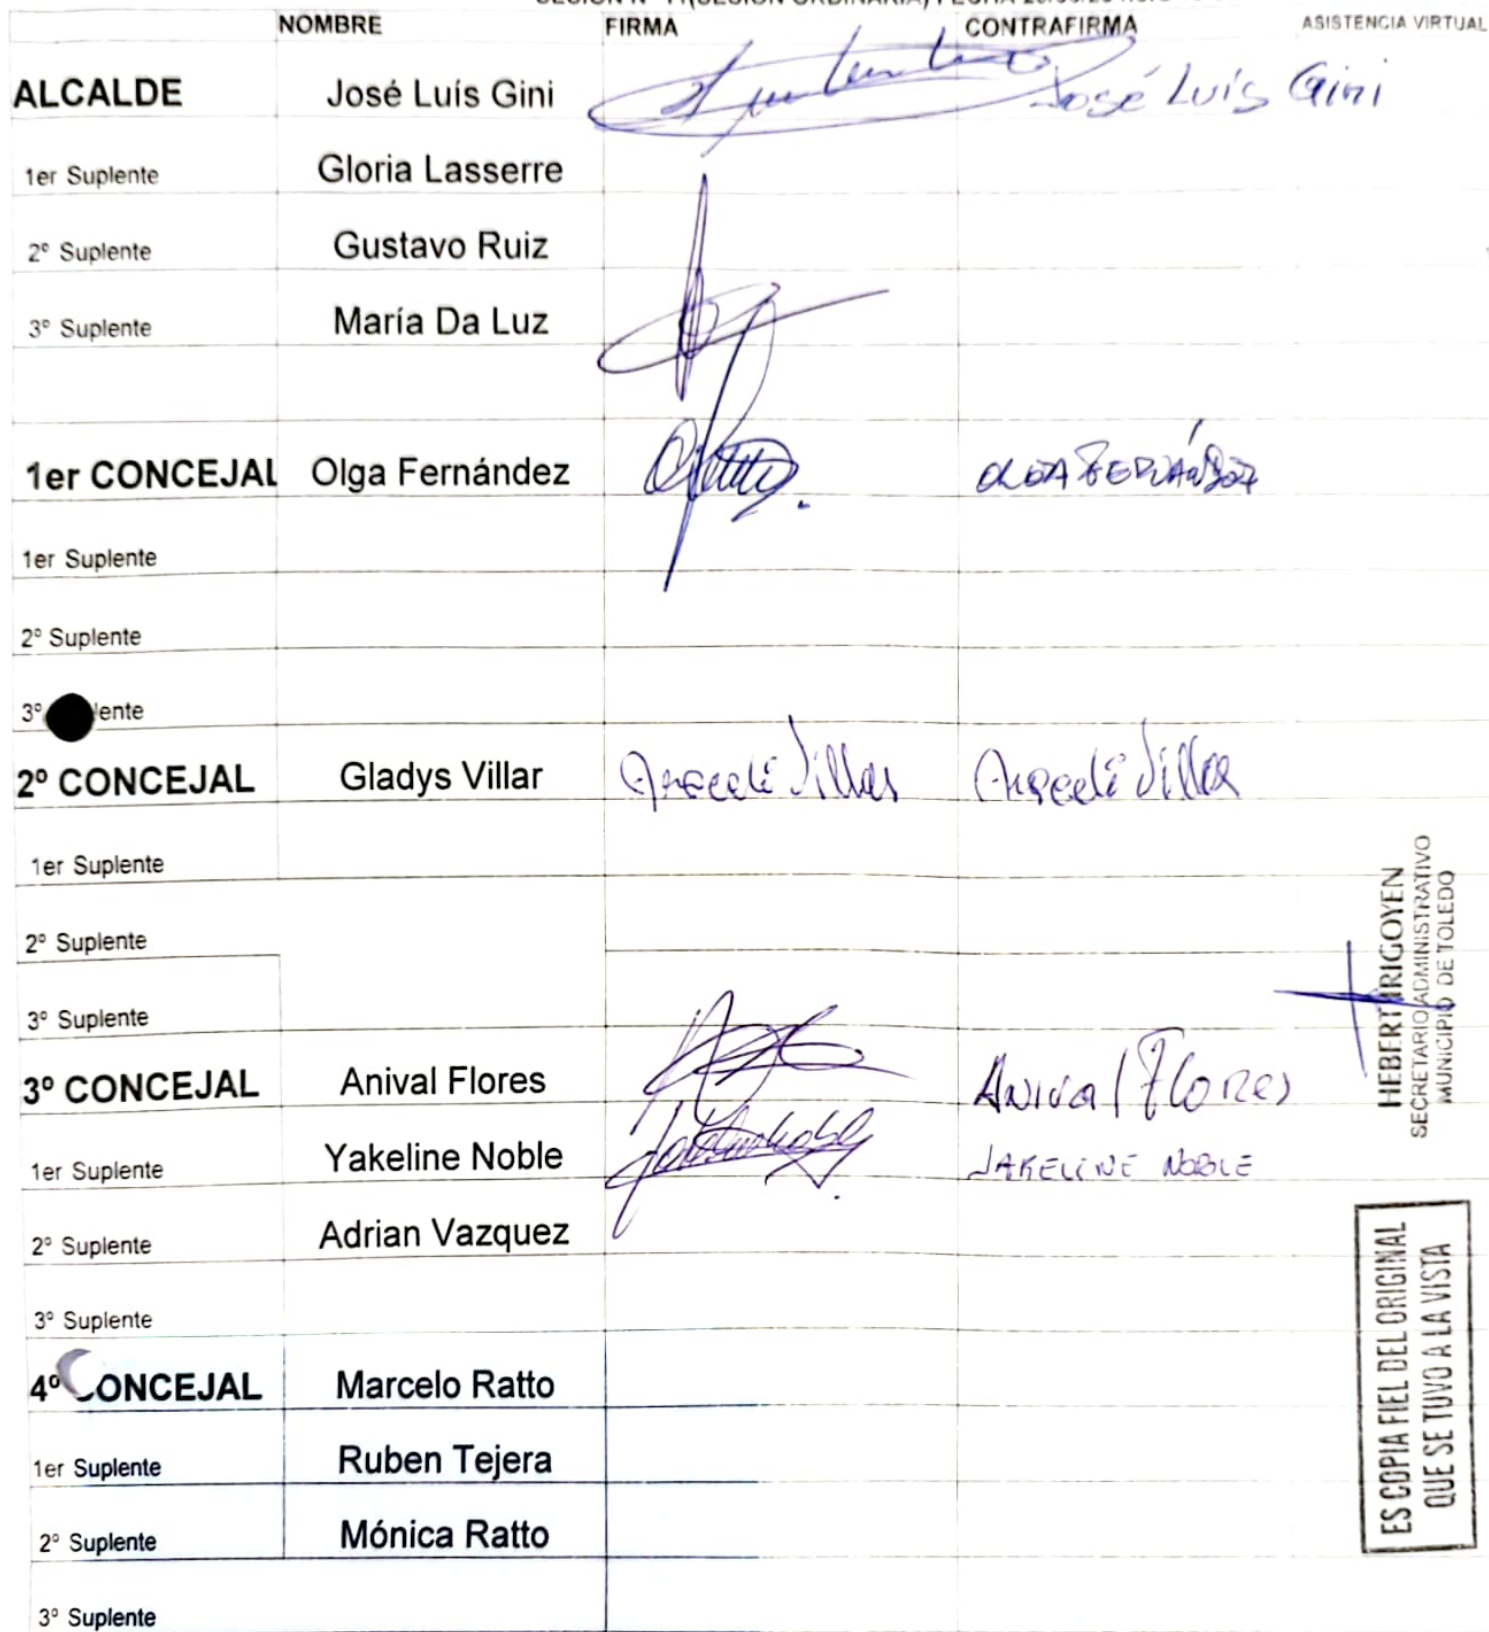 NOMBRE FIRMA CONTRAFIRMA ASISTENCIA VIRTUAL
ALCALDE José Luís Gini José Luís Gini
1er Suplente Gloria Lasserre
2º Suplente Gustavo Ruiz
3º Suplente María Da Luz
1er CONCEJAL Olga Fernández OLGA FERNÁNDEZ
1er Suplente
2º Suplente
3º lente
2º CONCEJAL Gladys Villar Araceli Villar Araceli Villar
1er Suplente
2º Suplente
3º Suplente
3º CONCEJAL Anival Flores Anival Flores
1er Suplente Yakeline Noble JAKELINE NOBLE
2º Suplente Adrian Vazquez
3º Suplente
4º CONCEJAL Marcelo Ratto
1er Suplente Ruben Tejera
2º Suplente Mónica Ratto
3º Suplente
HEBERT IRIGOYEN
SECRETARIO ADMINISTRATIVO
MUNICIPIO DE TOLEDO
ES COPIA FIEL DEL ORIGINAL
QUE SE TUVO A LA VISTA